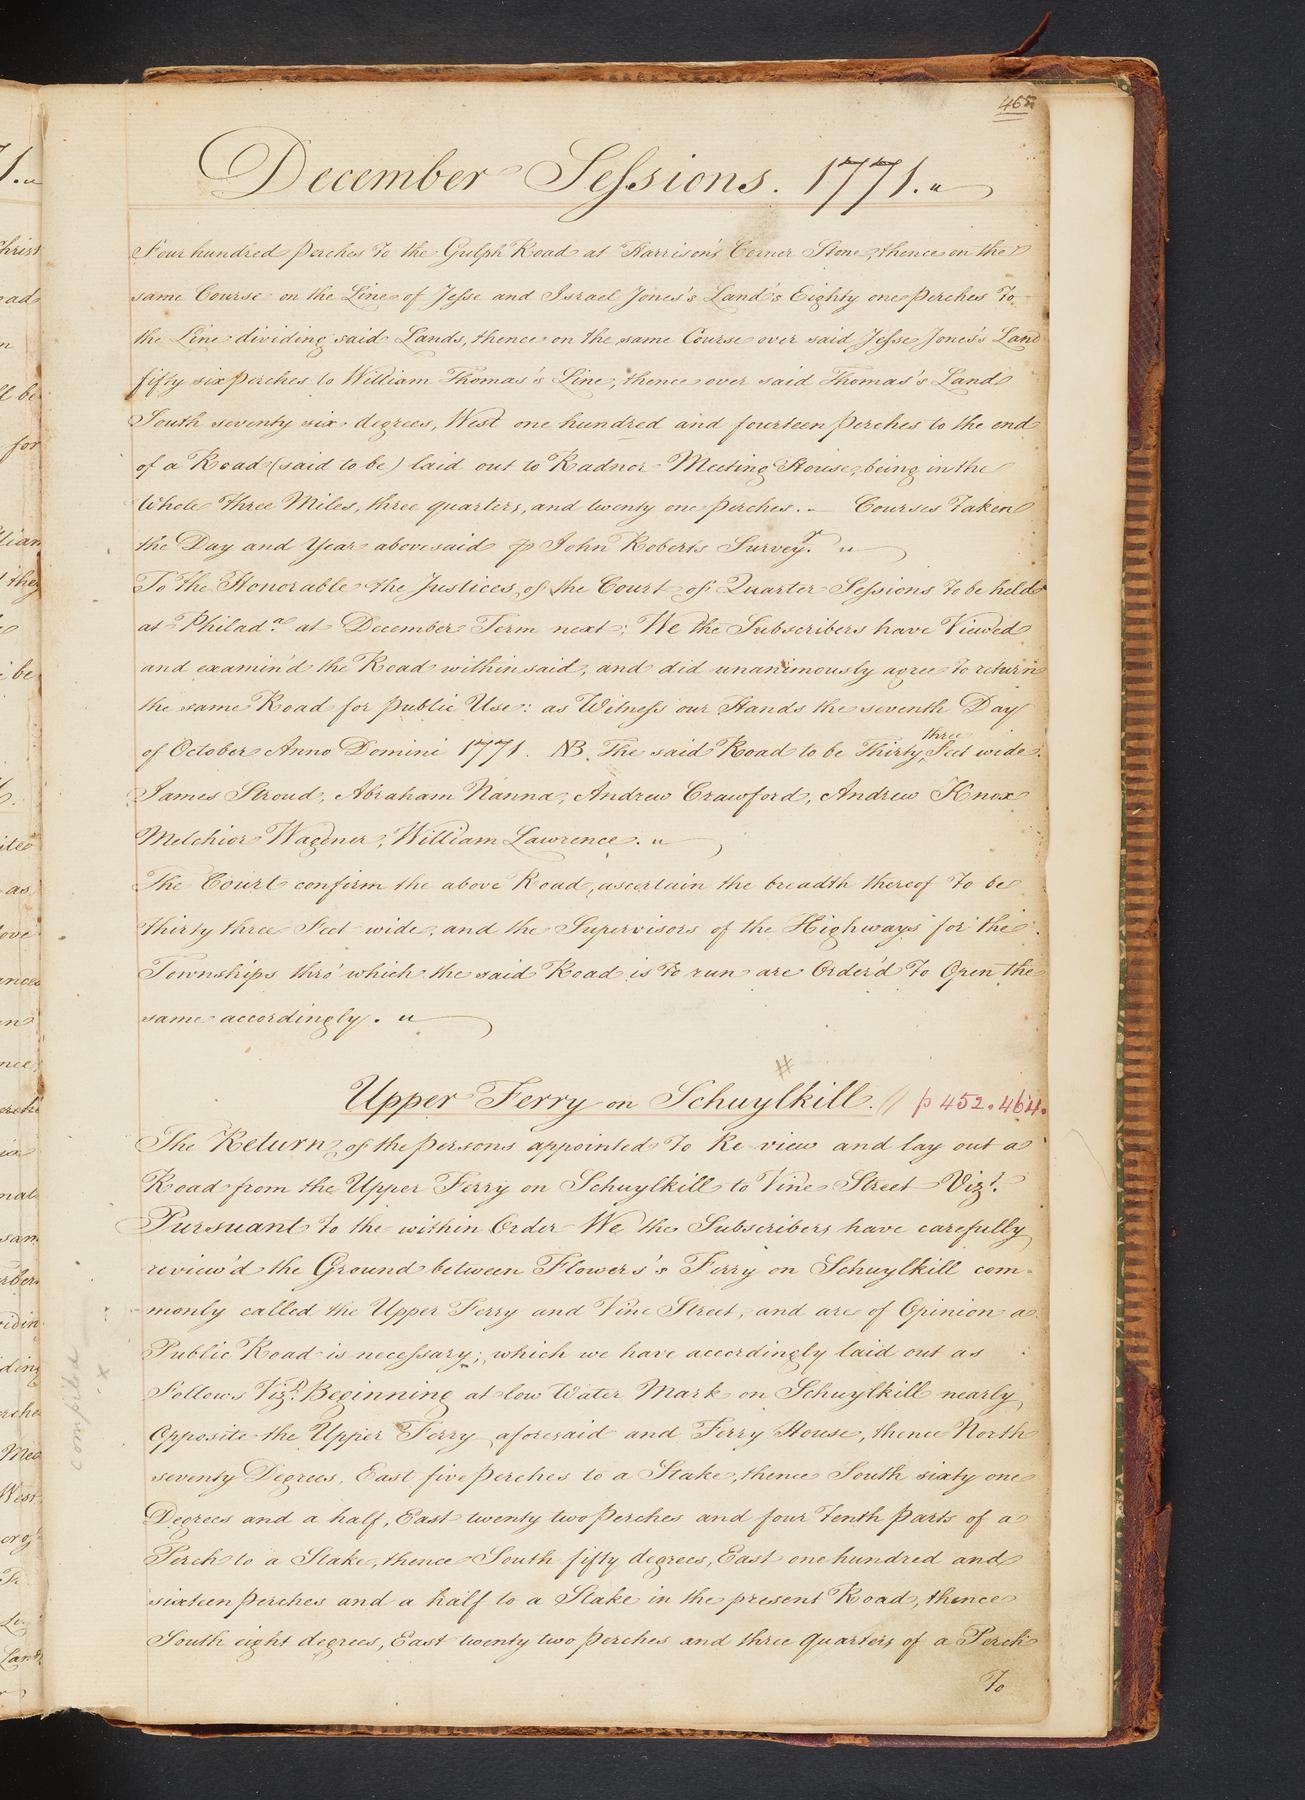 465
December Sessions. 1771.
Four hundred perches to the Gulph Road at Harrison's Corner Stone, thence on the
same Course on the Line of Jesse and Israel Jones's Land's Eighty one perches To
the Line dividing said Lands, thence on the same Course over said Jesse Jones's Land
fifty six perches to William Thomas's Line, thence over said Thomas's Land
South seventy six degrees, West one hundred and fourteen perches to the end
of a Road (said to be) laid out to Radnor Meeting House, being in the
Whole Three Miles, three quarters, and twenty one perches. Courses Taken
the Day and Year abovesaid p John Roberts Survey.r
To the Honorable the Justices of the Court of Quarter Sessions To be held
at Philad.a at December Term next; We the Subscribers have Viewed
and examin'd the Road within said, and did unanimously agree To return
the same Road for public Use: as Witness our Hands the seventh Day
of October Anno Domini 1771. NB. The said Road to be Thirty three Feet wide.
James Stroud, Abraham Nanna, Andrew Crawford, Andrew Knox
Melchior Wagener, William Lawrence.
The Court confirm the above Road, ascertain the breadth thereof To be
thirty three Feet wide, and the Supervisors of the Highways for the
Townships thro' which the said Road is To run are Order'd To Open the
same accordingly.
#
Upper Ferry on Schuylkill. // p 452. 464.
The Return of the persons appointed To Re view and lay out a
Road from the Upper Ferry on Schuylkill to Vine Street Viz.t
Pursuant To the within Order We the Subscribers have carefully
review'd the Ground between Flowers's Ferry on Schuylkill com-
monly called the Upper Ferry and Vine Street, and are of Opinion a
Public Road is necessary; which we have accordingly laid out as
Follows Viz.t Beginning at low Water Mark on Schuylkill nearly
Opposite the Upper Ferry aforesaid and Ferry House, thence North
seventy Degrees, East five perches to a Stake, thence South sixty one
Degrees and a half, East twenty two perches and four Tenth parts of a
Perch to a Stake, thence South fifty degrees, East one hundred and
sixteen perches and a half to a Stake in the present Road, thence
South eight degrees, East twenty two perches and three quarters of a Perch
To
compiled
x